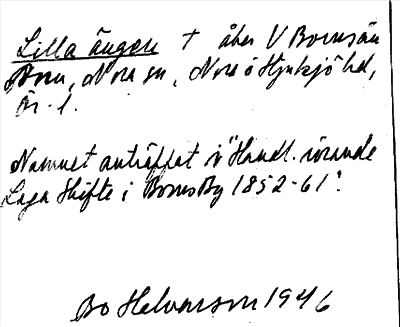 Lilla ängen † åker V Bornsån
Born, Nora sn, Nora o Hjulsjö hd,
Ör. l.
Namnet anträffat i "Handl. rörande
Laga Skifte i Borns By 1852-61".
Bo Helvarson 1946